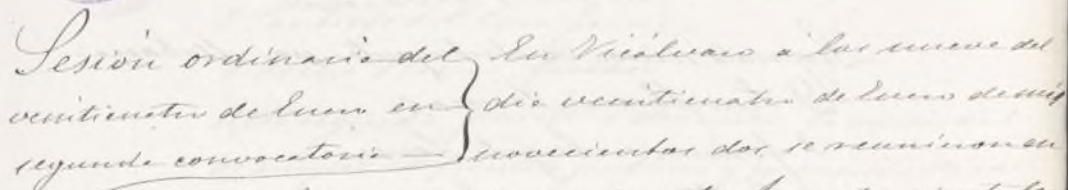 Sesión ordinaria del
veinticuatro de Enero en
segunda convocatoria —
En Vicálvaro á las nueve del
dia veinticuatro de Enero de mil
novecientos dos se reunieron en